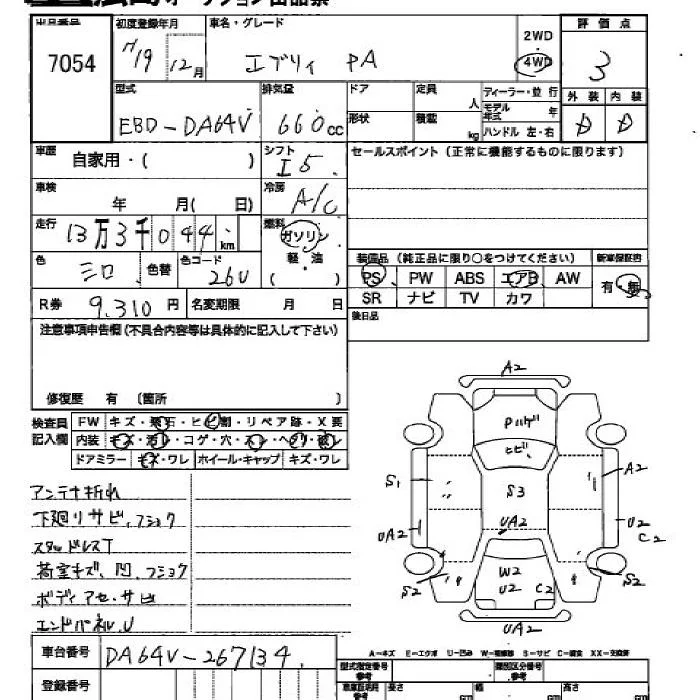 出品番号 初度登録年月 車名・グレード 評価点
7054 H19 12月 エブリィ PA 2WD 4WD 3
型式 排気量 ドア 定員 人 ディーラー・並行 外装 内装
EBD-DA64V 660cc 形状 積載 kg モデル年式 年 D D
ハンドル 左・右
車歴 自家用・( ) シフト I5 セールスポイント(正常に機能するものに限ります)
車検 年 月( 日) 冷房 A/C
走行 13万3千044km 燃料 ガソリン
軽・油
( )
色 シロ 色替 色コード 26U 装備品(純正品に限り○をつけてください) 新車保証書
PS PW ABS エアB AW 有・無
R券 9,310円 名変期限 月 日 SR ナビ TV カワ
注意事項申告欄(不具合内容等は具体的に記入して下さい) 後日品
修復歴 有 〔箇所 〕
検査員記入欄 FW キズ・飛石・ヒビ割・リペア跡・X要
内装 キズ・汚れ・コゲ・穴・スレ・ヘタリ・破レ
ドアミラー キズ・ワレ ホイール・キャップ キズ・ワレ
アンテナ折れ
下廻りサビ,フショク
スタッドレスT
荷室キズ、凹、フショク
ボディアセ・サビ
エンドパネルU
A2
Pハゲ
ヒビ
S1 S3 A2
UA2 UA2 U2 C2
S2 W2 U2 C2 S2
UA2
車台番号 DA64V-267134
A-キズ E-エクボ U-凹み S-サビ C-腐食 XX-交換済
登録番号 型式指定番号 参考 類別区分番号 参考
長さ cm 幅 cm 高さ cm